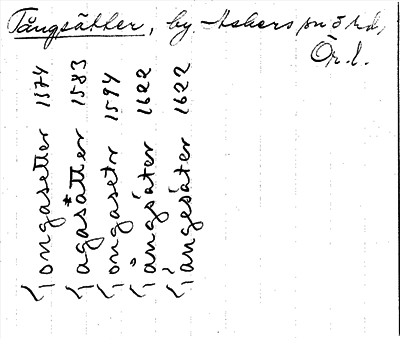 Tångsätter, by. Askers sn o hd,
Ör. l.
Tongasetter 1574
Tagasätter 1583
Tongasetr 1594
Tångsäter 1622
Tångesäter 1622